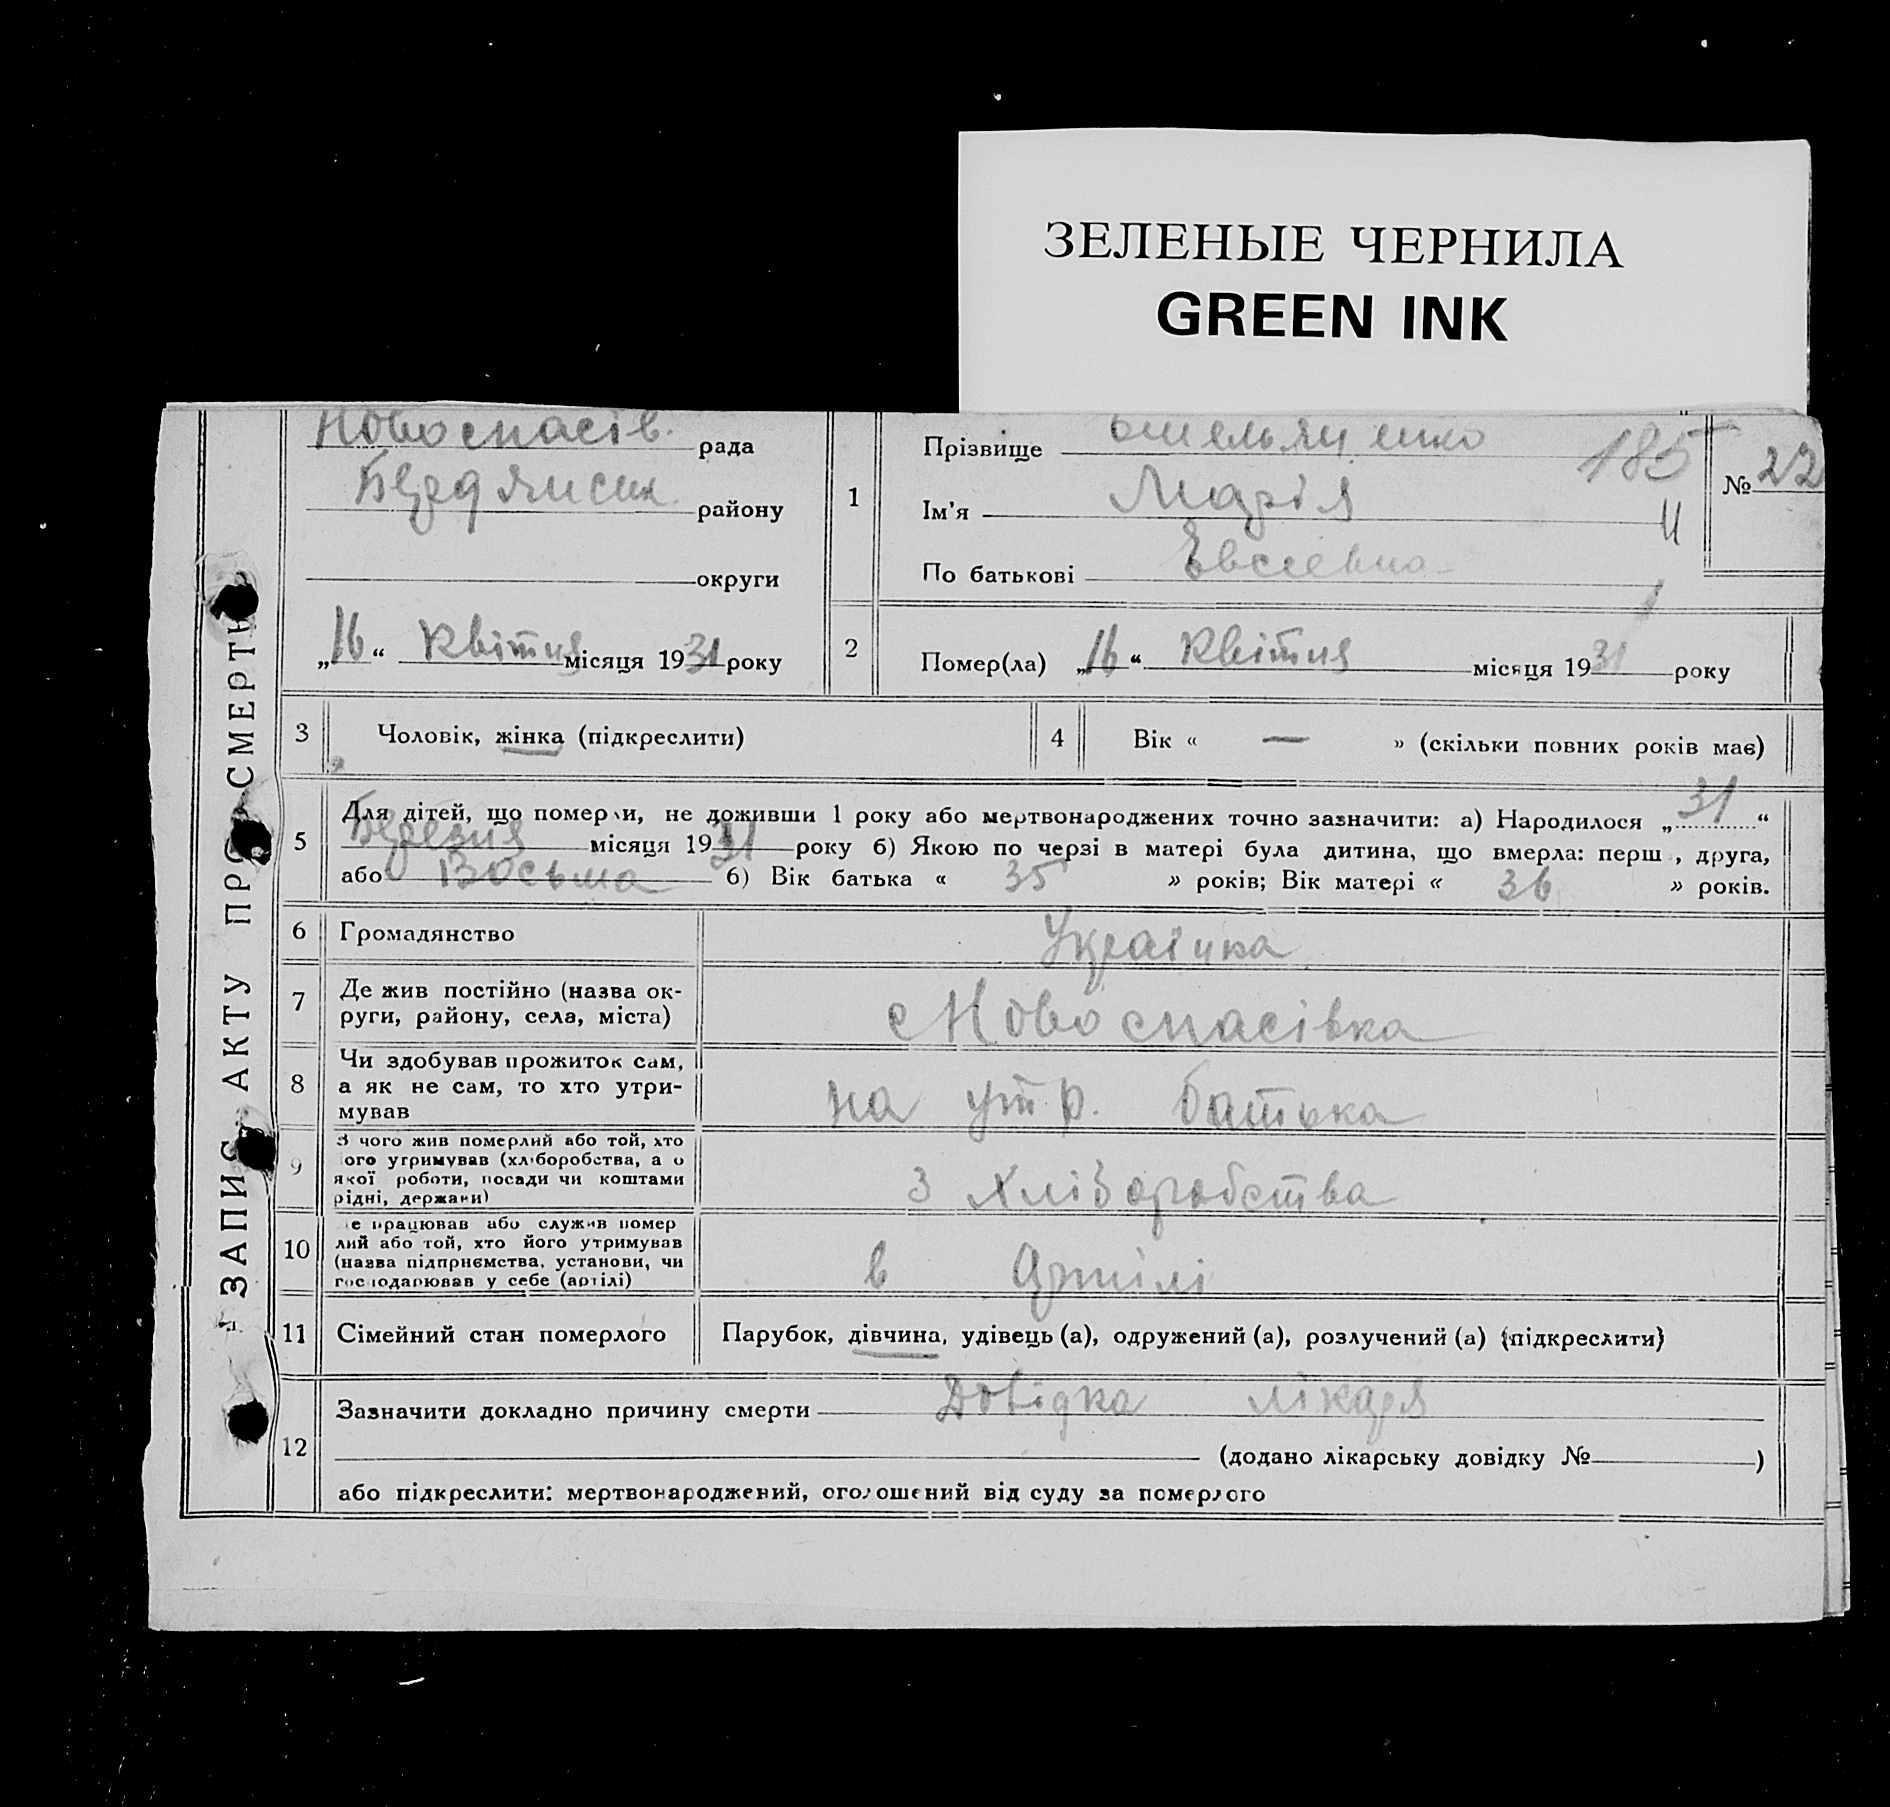 ЗЕЛЕНЫЕ ЧЕРНИЛА
GREEN INK
ЗАПИС АКТУ ПРО СМЕРТЬ
Новоспасів. рада
Бердянськ. району
округи
„16“ Квітня місяця 1931 року
1
Прізвище Омельяненко
Ім'я Марія
По батькові Евсеевна
185
№ 22
2 Помер(ла) „16“ Квітня місяця 1931 року
3 Чоловік, жінка (підкреслити)
4 Вік « — » (скільки повних років має)
5 Для дітей, що померли, не доживши 1 року або мертвонароджених точно зазначити: а) Народилося „31“
Березня місяця 1931 року б) Якою по черзі в матері була дитина, що вмерла: перш , друга,
або Восьма б) Вік батька « 35 » років; Вік матері « 36 » років.
6 Громадянство Украінка
7 Де жив постійно (назва ок-
руги, району, села, міста)
с Новоспасівка
8 Чи здобував прожиток сам,
а як не сам, то хто утри-
мував
на утр. батька
9 З чого жив померлий або той, хто
ого утримував (хліборобства, а о
якої роботи, посади чи коштами
рідні, держави)
З Хліборобства
10 е працював або служив помер
лий або той, хто його утримував
(назва підприємства, установи, чи
господарював у себе (артілі)
в Артілі
11 Сімейний стан померлого Парубок, дівчина, удівець (а), одружений (а), розлучений (а) (підкреслити)
12 Зазначити докладно причину смерти Довідка лікаря
(додано лікарську довідку № )
або підкреслити: мертвонароджений, оголошений від суду за померлого